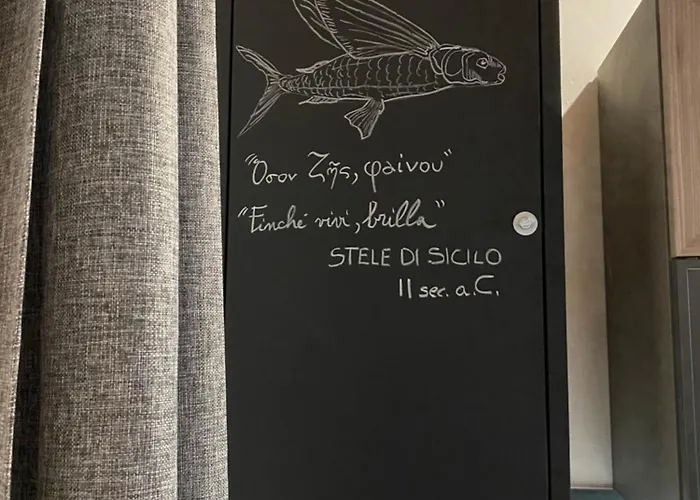 "Ὅσον ζῆς, φαίνου"
"Finché vivi, brilla"
STELE DI SICILO
II sec. a.C.